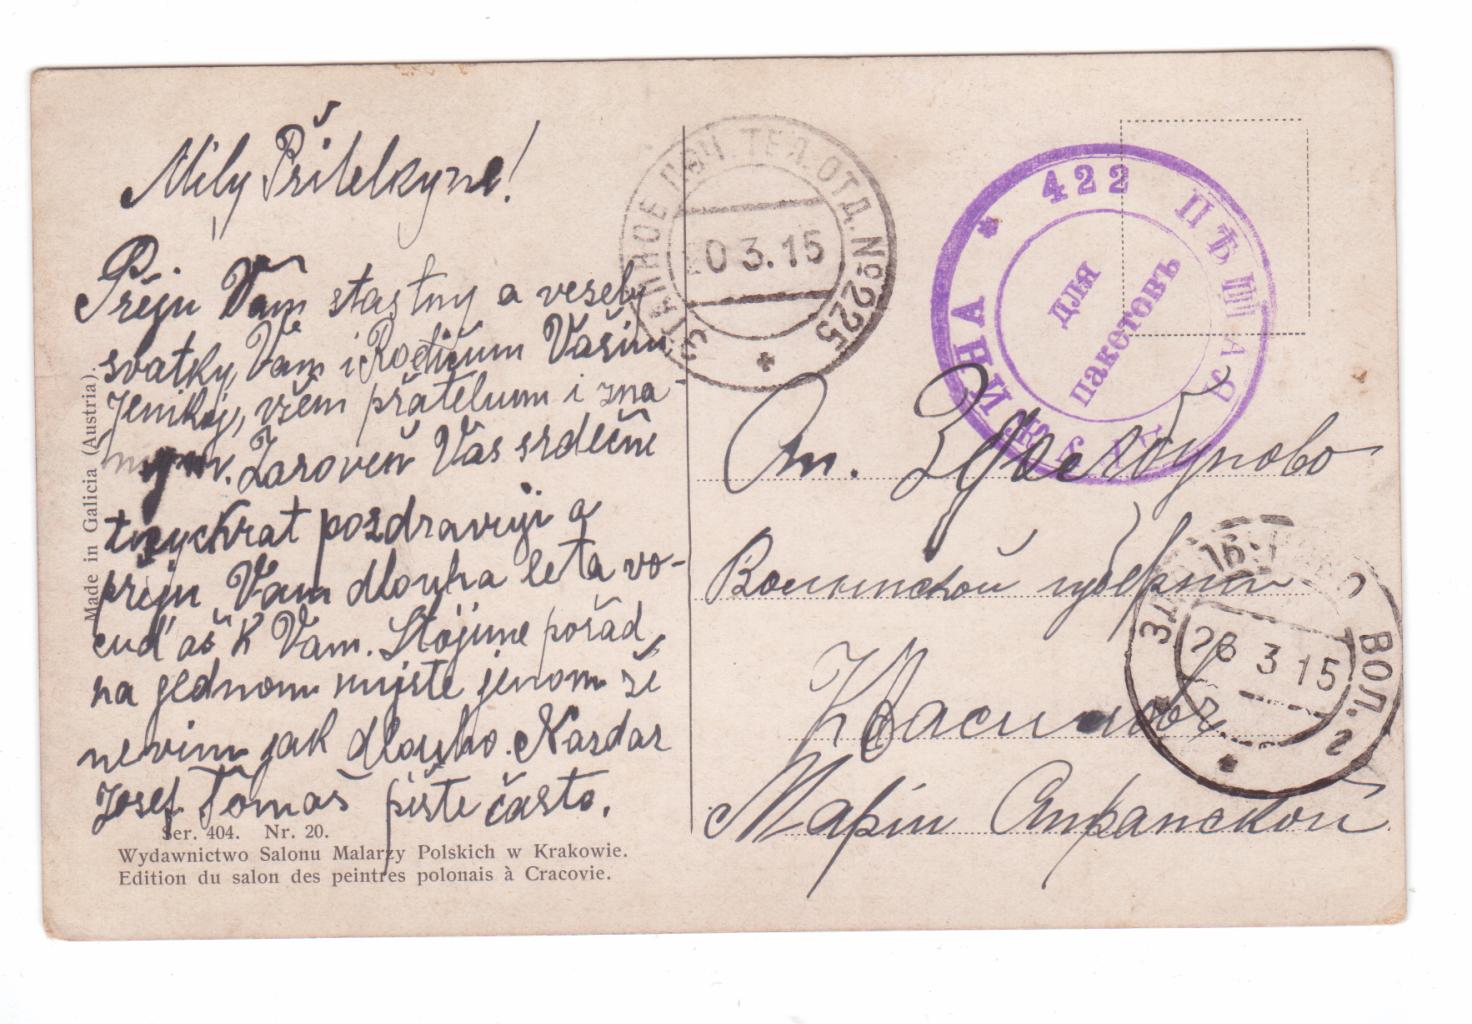 Milý Přitelkyne!
Přeju Vam stastny a vesely
svatky, Vam i Rodičum Vašim
Jenikoj, všem přatelum i zna-
mym. Zaroveň Vas srdečně
tisyckrat pozdravuji a
přeju Vam dlouha leta vo-
cuď aš k Vam. Stojime pořád
na jednom mijstě jenom že
nevim jak dlouho. Nazdar
Josef Tomaš pište často.
Made in Galicia (Austria).
Ser. 404. Nr. 20.
Wydawnictwo Salonu Malarzy Polskich w Krakowie.
Edition du salon des peintres polonais à Cracovie.
ЭТАПНОЕ ПОЧ. ТЕЛ. ОТД. № 225
0 3.15
422 ПѢШАЯ ДРУЖИНА
для
пакетовъ
Ст. Здолбуново
Волынской губерни
Квасиловъ
Маріи Странской
ВОЛ.
26 3 15